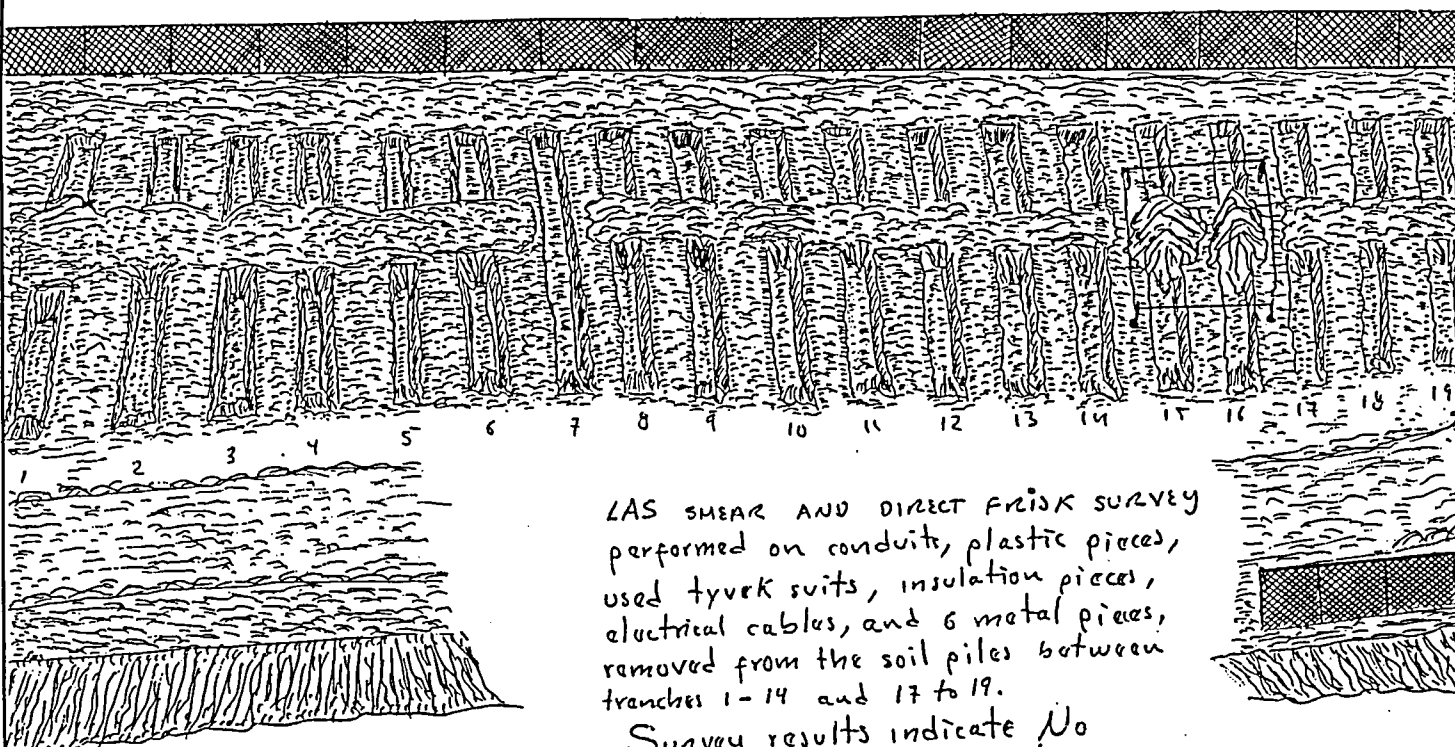 1 2 3 4 5 6 7 8 9 10 11 12 13 14 15 16 17 18 19
LAS SMEAR AND DIRECT FRISK SURVEY
performed on conduits, plastic pieces,
used tyvek suits, insulation pieces,
electrical cables, and 6 metal pieces,
removed from the soil piles between
trenches 1-14 and 17 to 19.
Survey results indicate No